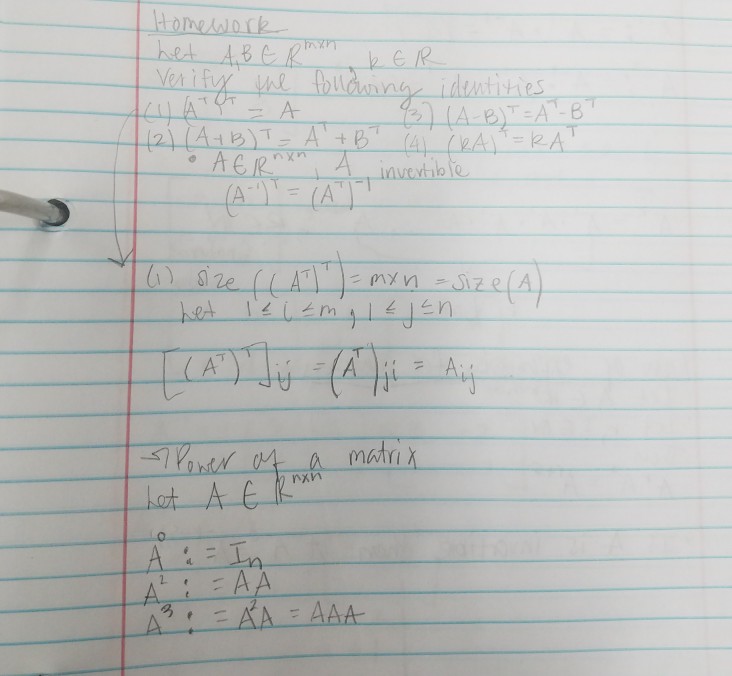 Homework
Let A,B ∈ ℝ^{m×n}, k ∈ ℝ
Verify the following identities
(1) (A^T)^T = A (3) (A-B)^T = A^T - B^T
(2) (A+B)^T = A^T + B^T (4) (kA)^T = kA^T
• A ∈ ℝ^{n×n}, A invertible
(A^{-1})^T = (A^T)^{-1}
(1) size ((A^T)^T) = m×n = size(A)
Let 1 ≤ i ≤ m, 1 ≤ j ≤ n
[(A^T)^T]_{ij} = (A^T)_{ji} = A_{ij}
→ Power of a matrix
Let A ∈ ℝ^{n×n}
A^0 := I_n
A^2 := AA
A^3 := A^2A = AAA